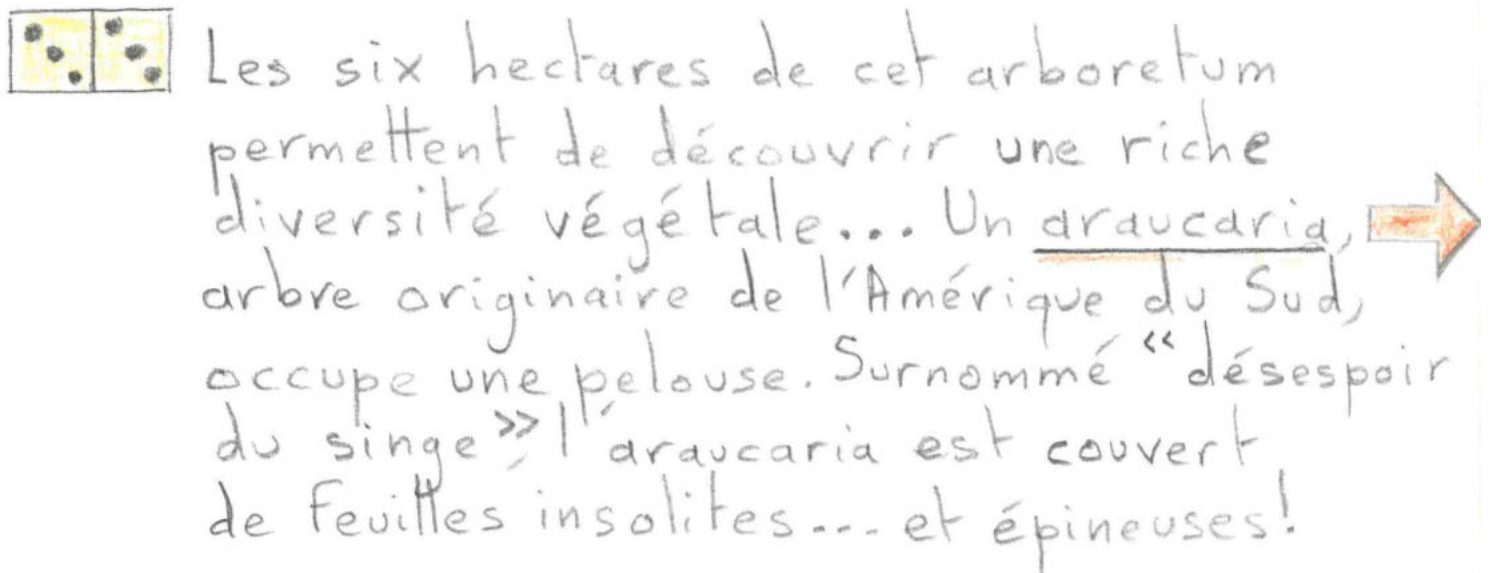 Les six hectares de cet arboretum
permettent de découvrir une riche
diversité végétale... Un araucaria,
arbre originaire de l'Amérique du Sud,
occupe une pelouse. Surnommé « désespoir
du singe », l'araucaria est couvert
de feuilles insolites... et épineuses!